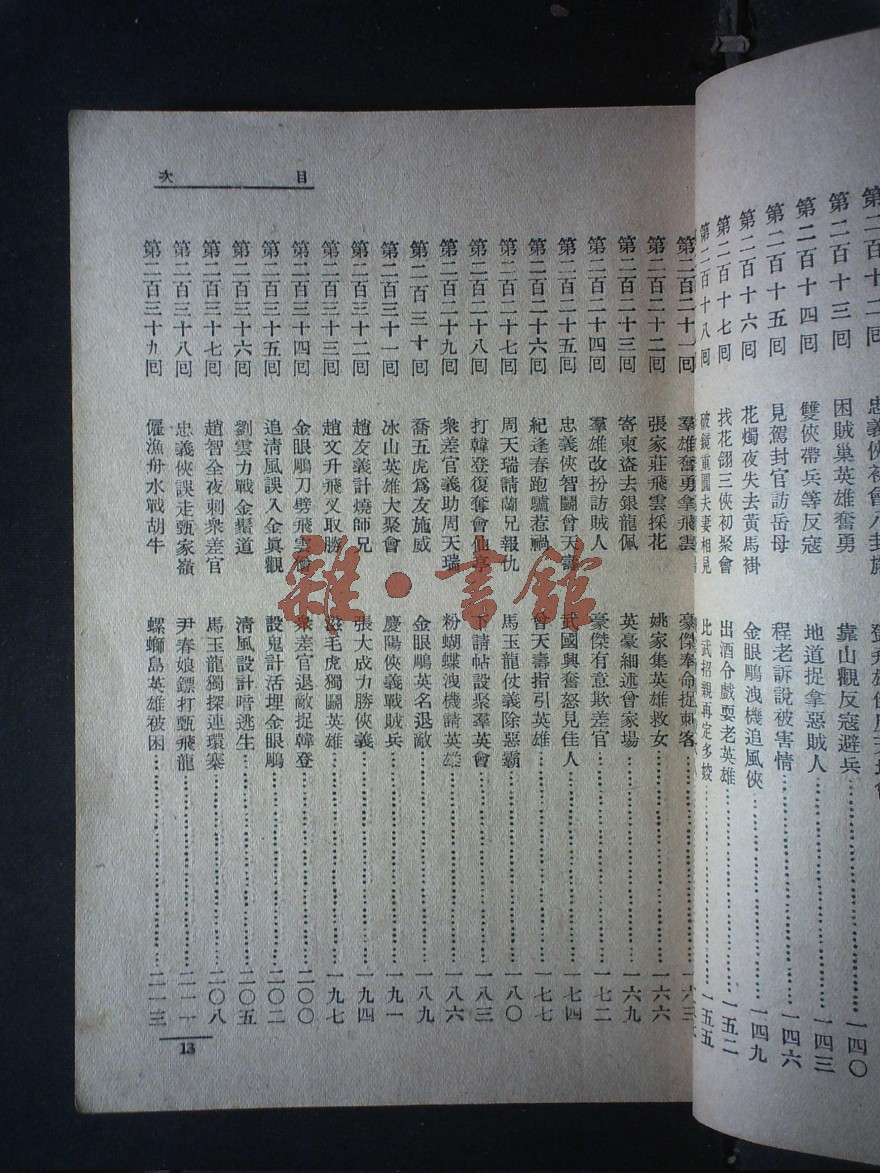 第二百十二回 忠義俠初會八卦
第二百十三回 困賊巢英雄奮勇 靠山觀反寇避兵 一四〇
第二百十四回 雙俠帶兵等反寇 地道捉拿惡賊人 一四三
第二百十五回 見駕封官訪岳母 程老訴說被害情 一四六
第二百十六回 花燭夜失去黃馬褂 金眼鵰洩機追風俠 一四九
第二百十七回 找花翎三俠初聚會 出酒令戲耍老英雄 一五二
第二百十八回 破鏡重圓夫妻相見 比武招親再定多姣 一五五
目 次
第二百二十一回 羣雄奮勇拿飛雲 豪傑奉命捉刺客 一六三
第二百二十二回 張家莊飛雲採花 姚家集英雄救女 一六六
第二百二十三回 寄柬盜去銀龍佩 英豪細述曾家場 一六九
第二百二十四回 羣雄改扮訪賊人 豪傑有意欺差官 一七二
第二百二十五回 忠義俠智鬪曾天壽 武國興奮怒見佳人 一七四
第二百二十六回 紀逢春跑驢惹禍 曾天壽指引英雄 一七七
第二百二十七回 周天瑞請蘭兄報仇 馬玉龍仗義除惡霸 一八〇
第二百二十八回 打韓登復奪會仙亭 下請帖設聚羣英會 一八三
第二百二十九回 衆差官義助周天瑞 粉蝴蝶洩機請英雄 一八六
第二百三十回 喬五虎爲友施威 金眼鵰英名退敵 一八九
第二百三十一回 冰山英雄大聚會 慶陽俠義戰賊兵 一九一
第二百三十二回 趙友義計燒師兄 張大成力勝俠義 一九四
第二百三十三回 趙文升飛叉取勝 毛虎獨鬪英雄 一九七
第二百三十四回 金眼鵰刀劈飛雲 衆差官退敵捉韓登 二〇〇
第二百三十五回 追淸風誤入金眞觀 設鬼計活埋金眼鵰 二〇二
第二百三十六回 劉雲力戰金鬚道 淸風設計暗逃生 二〇五
第二百三十七回 趙智全夜刺衆差官 馬玉龍獨探連環寨 二〇八
第二百三十八回 忠義俠誤走甄家嶺 尹春娘鏢打甄飛龍 二一一
第二百三十九回 僱漁舟水戰胡牛 螺螄島英雄被困 二一三
13
雜·書館